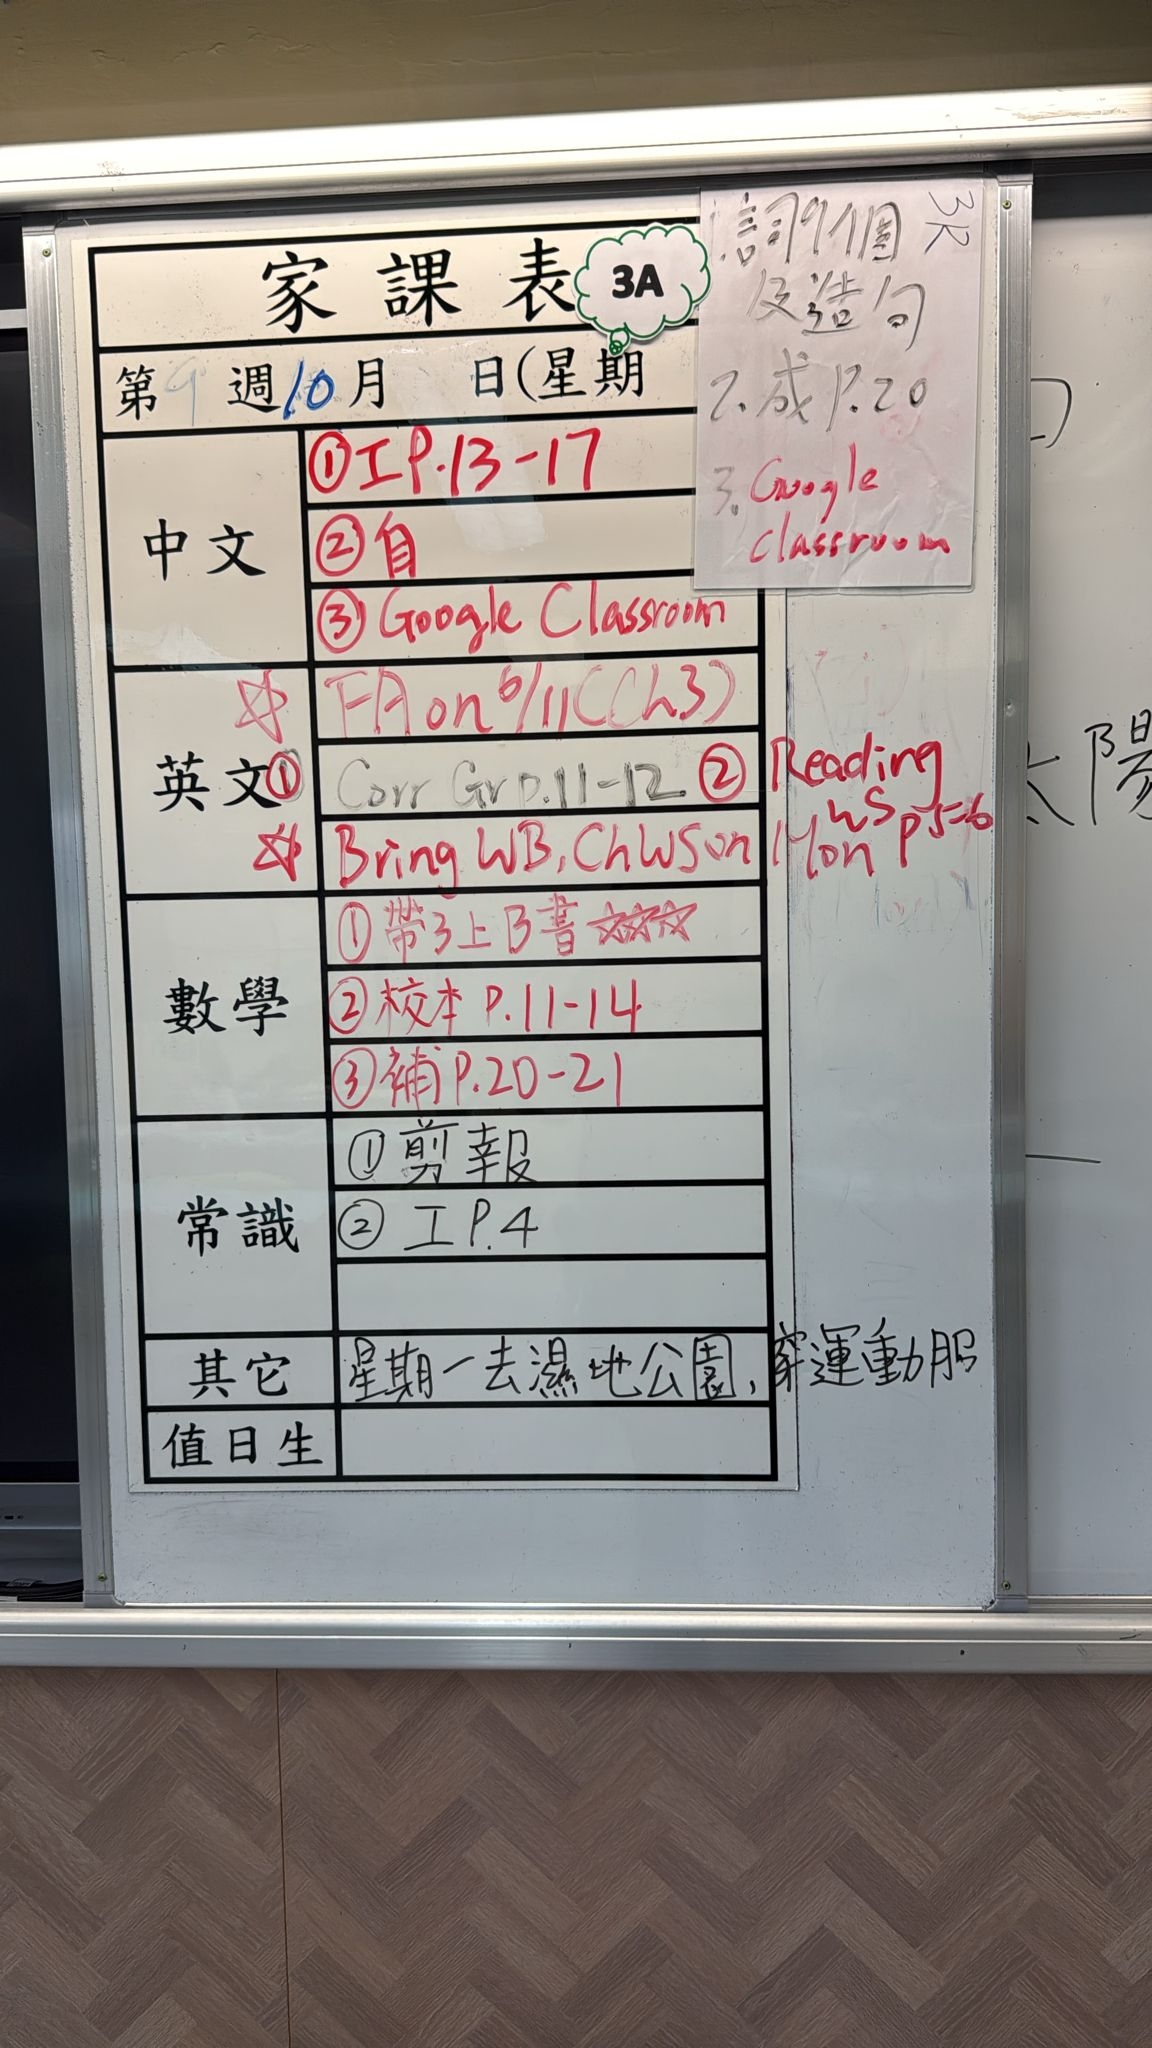 家課表 3A
第9週10月 日(星期
中文
①工P.13-17
②自
③Google Classroom
英文
☆ FA on 6/11 (Ch3)
① Corr Gr p.11-12 ② Reading WS p5-6
☆ Bring WB, ChWS on Mon
數學
①帶3上B書☆☆☆
②校本 P.11-14
③補P.20-21
常識
①剪報
② 工P.4
其它
星期一去濕地公園,穿運動服
值日生
3R
1.詞9個
及造句
2.成P.20
3.Google
classroom
太陽